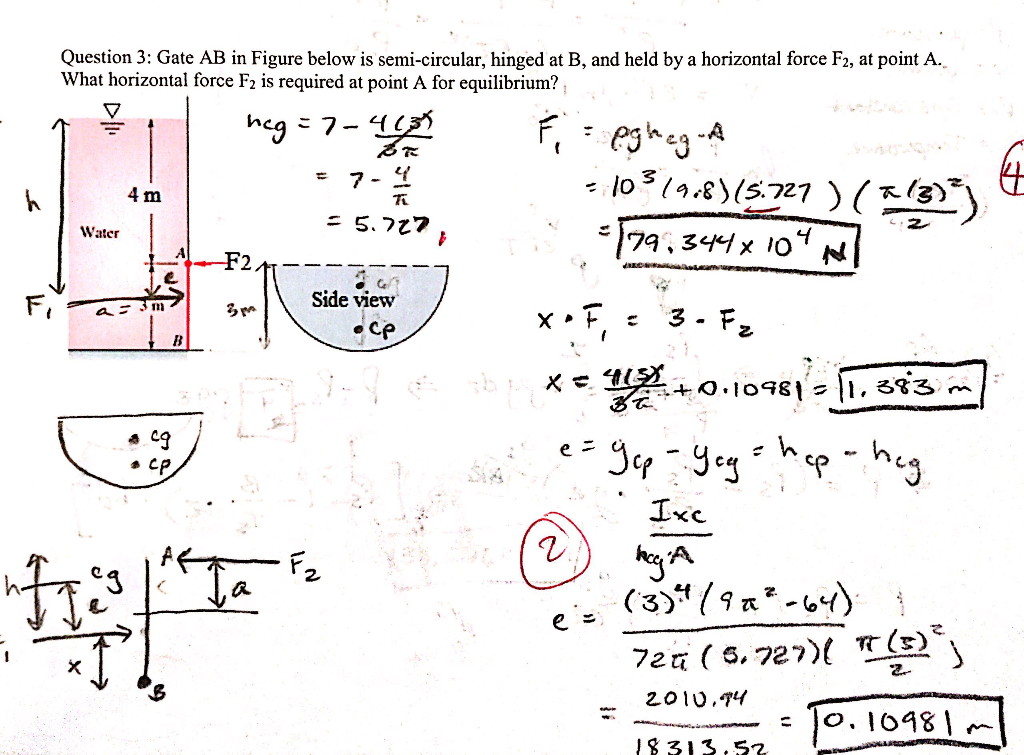 Question 3: Gate AB in Figure below is semi-circular, hinged at B, and held by a horizontal force F₂, at point A.
What horizontal force F₂ is required at point A for equilibrium?
hcg = 7 - 4(3)/3π
= 7 - 4/π
= 5.727
h
4 m
Water
A
F2
e
F₁
a = 3 m
B
3m
cg
Side view
cp
F₁ = ρghcg·A
= 10³ (9.8)(5.727) (π(3)²/2)
= 79.344 x 10⁴ N
4
x • F₁ = 3 - F₂
x = 4(3)/3π + 0.10981 = 1.383 m
e = ycp - ycg = hcp - hcg
Ixc
hcg·A
2
e = (3)⁴ (9π² - 64)
72π (5.727)( π(3)²/2 )
= 2010.94
18313.52
= 0.10981 m
cg
cp
A
F₂
a
h
cg
e
x
B